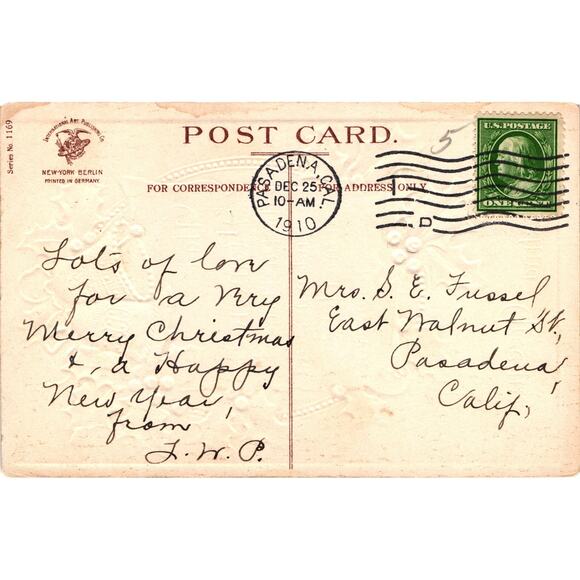 Series No. 1169
INTERNATIONAL ART PUBLISHING CO.
NEW-YORK BERLIN
PRINTED IN GERMANY.
POST CARD.
FOR CORRESPONDENCE
FOR ADDRESS ONLY
PASADENA, CAL.
DEC 25
10-AM
1910
D
5
U.S. POSTAGE
ONE CENT
Lots of love
for a Very
Merry Christmas
&, a Happy
New Year,
from
Mrs. S. E. Fussel
East Walnut St,
Pasadena,
Calif,